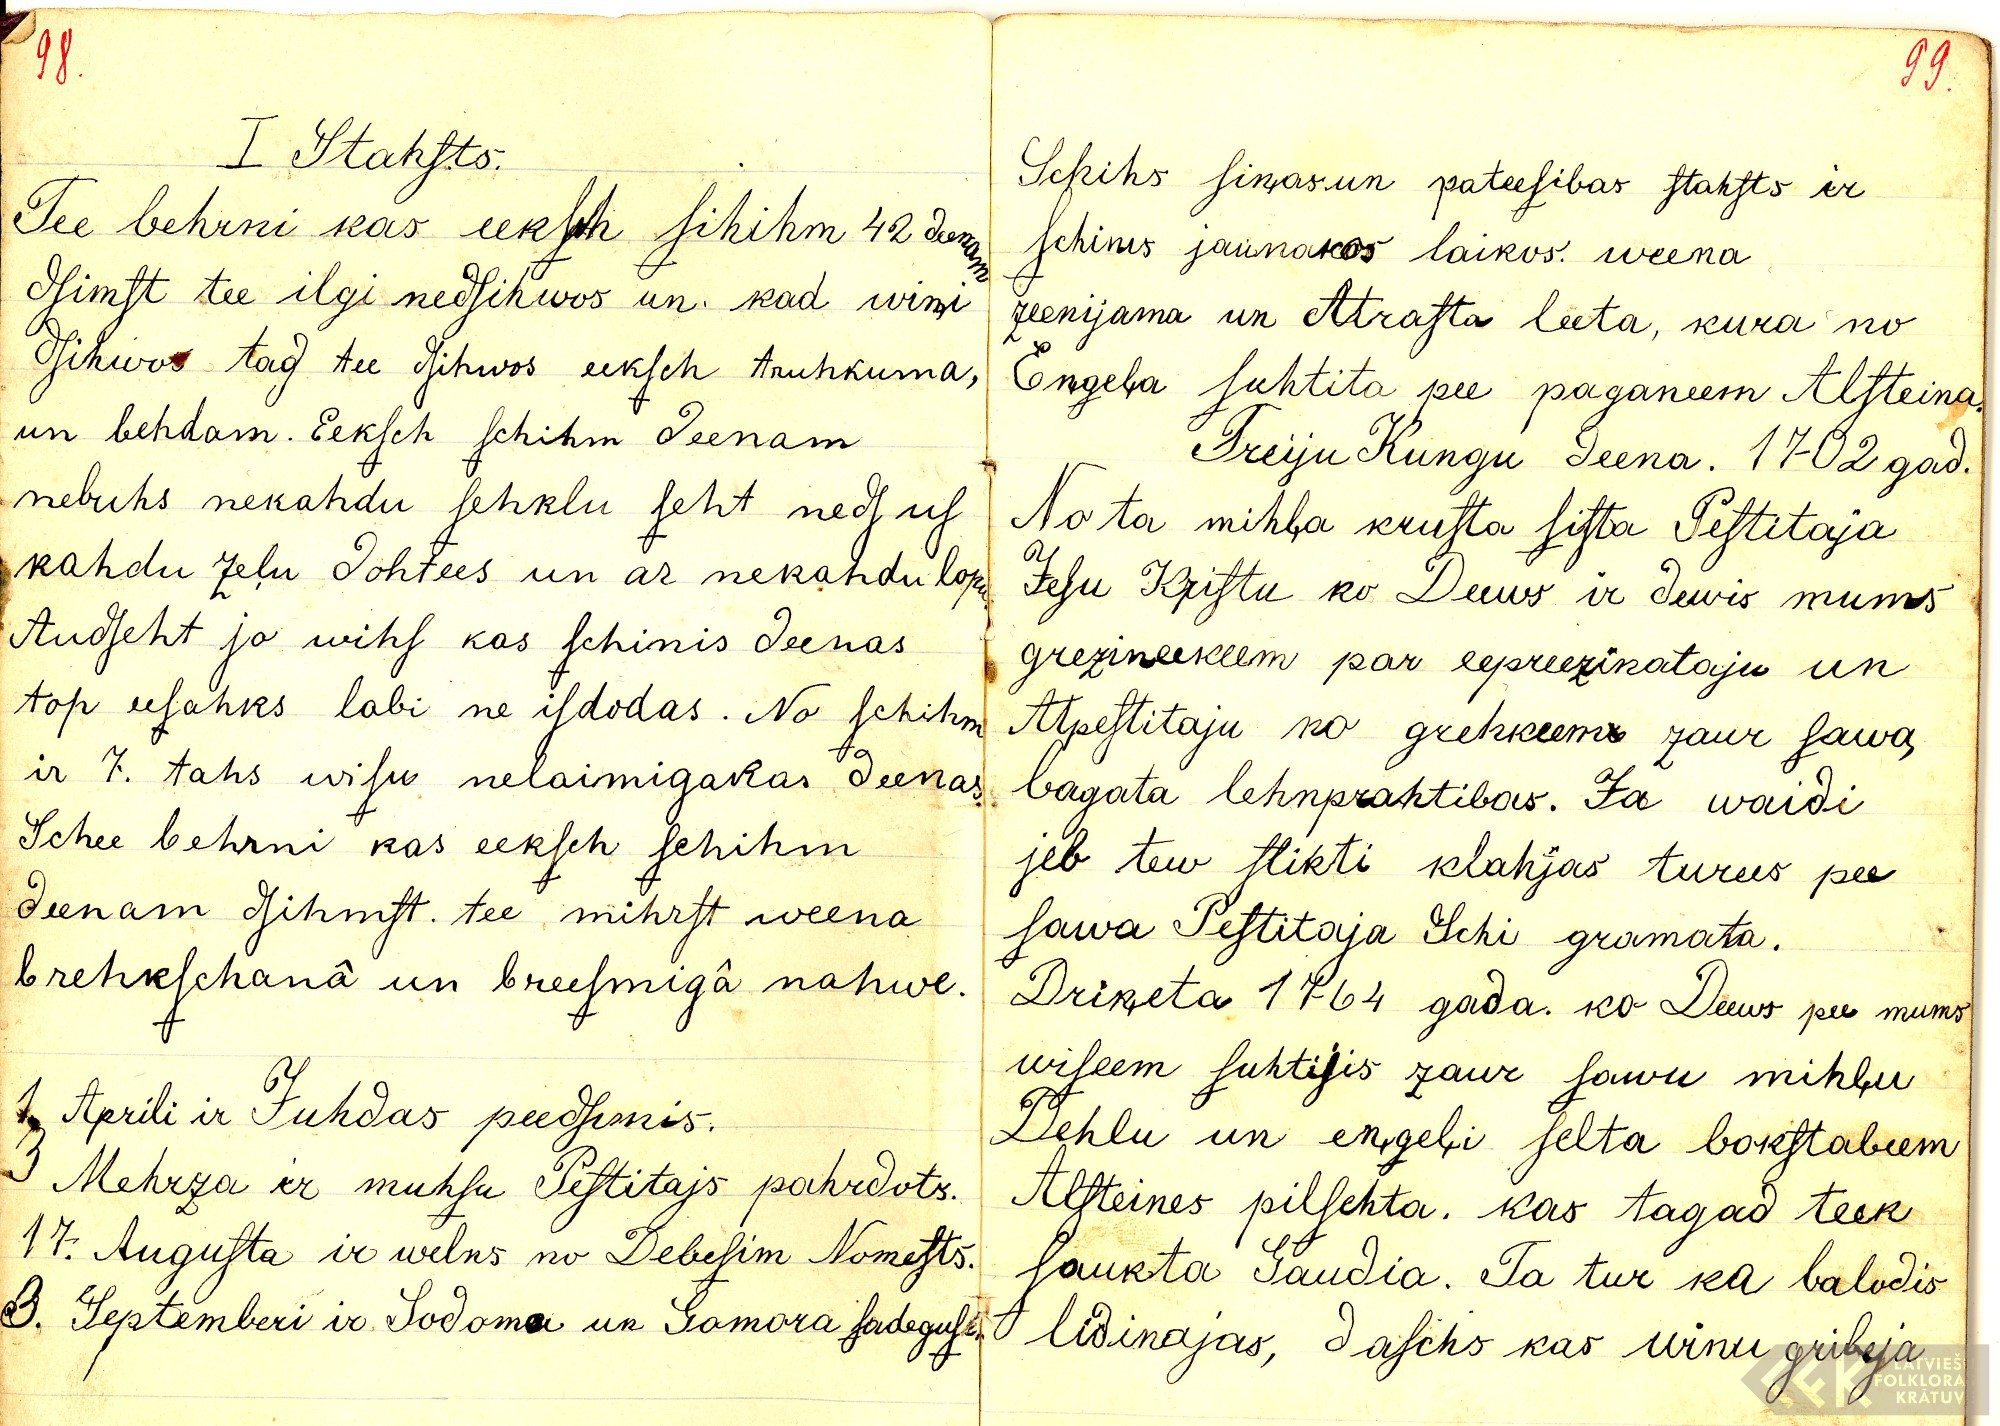 98.
I Stahſts.
Tee behrni kas eekſch ſihihm 42 deenam
dſimſt tee ilgi nedſihwos un. kad wiņi
dſihwos tad tee dſihwos eekſch truhkuma,
un behdam. Eekſch ſchihm deenam
nebuhs nekahdu ſehklu ſeht nedſ uſ
kahdu zeļu dohtees un ar nekahdu lopu
Audſeht jo wihſ kas ſchinis deenas
top eeſahks labi ne iſdodas. No ſchihm
ir 7. tahs wiſu nelaimigakas deenas.
Schee behrni kas eekſch ſchihm
deenam dſihmſt. tee mihrſt weena
brehkſchanâ un breeſmigâ nahwe.
1. Aprili ir Juhdas peedſimis.
3 Mehrza ir muhſu Peſtitajs pahrdots.
17. Auguſta ir welns no Debeſim Nomeſts.
3. Septemberi ir Sodoma un Gomora ſadeguſi.
99.
Schihs ſiņas un pateeſibas ſtahſts ir
ſchinis jaunakos laikos. weena
zeenijama un Atraſta leeta, kura no
Engeļa ſuhtita pee paganeem Alſteina.
Treiju Kungu deena. 1702 gad.
No ta mihļa kruſta ſiſta Peſtitaja
Jeſu Kriſtu ko Deews ir dewis mums
grezineekeem par eepreezinataju un
Atpeſtitaju no grehkeem zaur ſawa,
bagata lehnprahtibas. Ja waidi
jeb tew ſlikti klahjas turees pee
ſawa Peſtitaja Schi gramata.
Driķeta 1764 gada. ko Deews pee mums
wiſeem ſuhtijis zaur ſawu mihļu
Dehlu un eņgeļi ſelta bokſtabeem
Alſteines pilſehta. kas tagad teek
ſaukta Gaudia. Ta tur ka balodis
lidinajas, daſchs kas winu gribeja
LATVIEŠ
FOLKLORA
KRĀTUV